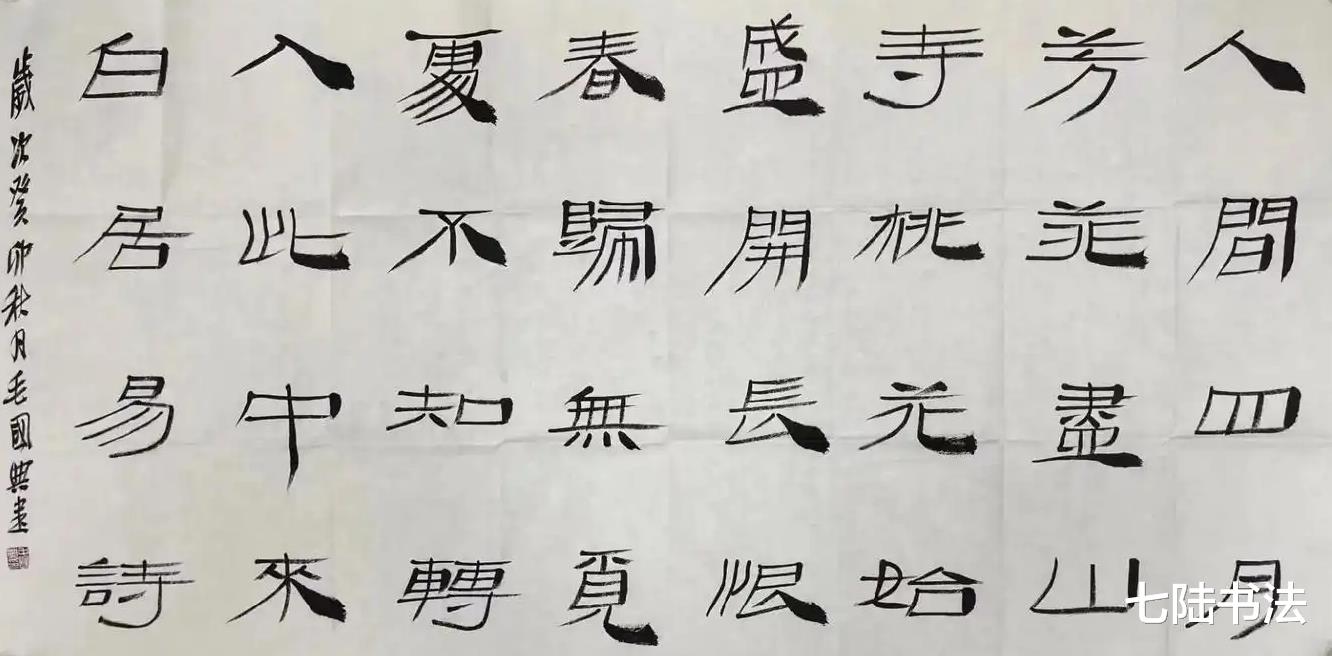 人間四月
芳菲盡山
寺桃花始
盛開長恨
春歸無覓
處不知轉
入此中來
白居易詩
歲次癸卯秋月毛國典書
七陆书法